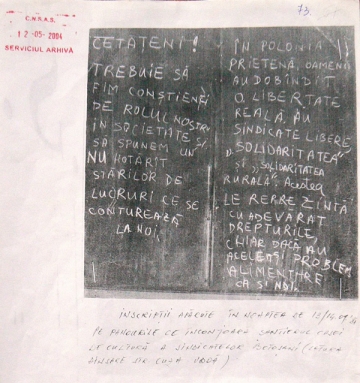 C.N.S.A.S.
12-05-2004
SERVICIUL ARHIVĂ
73.
CETĂŢENI!
TREBUIE SĂ
FIM CONSTIENŢI
DE ROLUL NOSTRU
IN SOCIETATE ŞI
SĂ SPUNEM UN
NU HOTĂRÎT
STĂRILOR DE
LUCRURI CE SE
CONTUREAZĂ
LA NOI.
IN POLONIA
PRIETENĂ, OAMENII
AU DOBÎNDIT
O LIBERTATE
REALĂ, AU
SINDICATE LIBERE
„SOLIDARITATEA”
ŞI „SOLIDARITATEA
RURALĂ”. Acestea
LE REPREZINTĂ
CU ADEVĂRAT
DREPTURILE
CHIAR DACĂ AU
ACELEAŞI PROBLEME
ALIMENTARE
CA SI NOI.
INSCRIPŢII APĂRUTE IN NOAPTEA DE 13/14.09
PE PANOURILE CE INCONJOARĂ ŞANTIERUL CASEI
DE CULTURĂ A SINDICATELOR BOTOŞANI